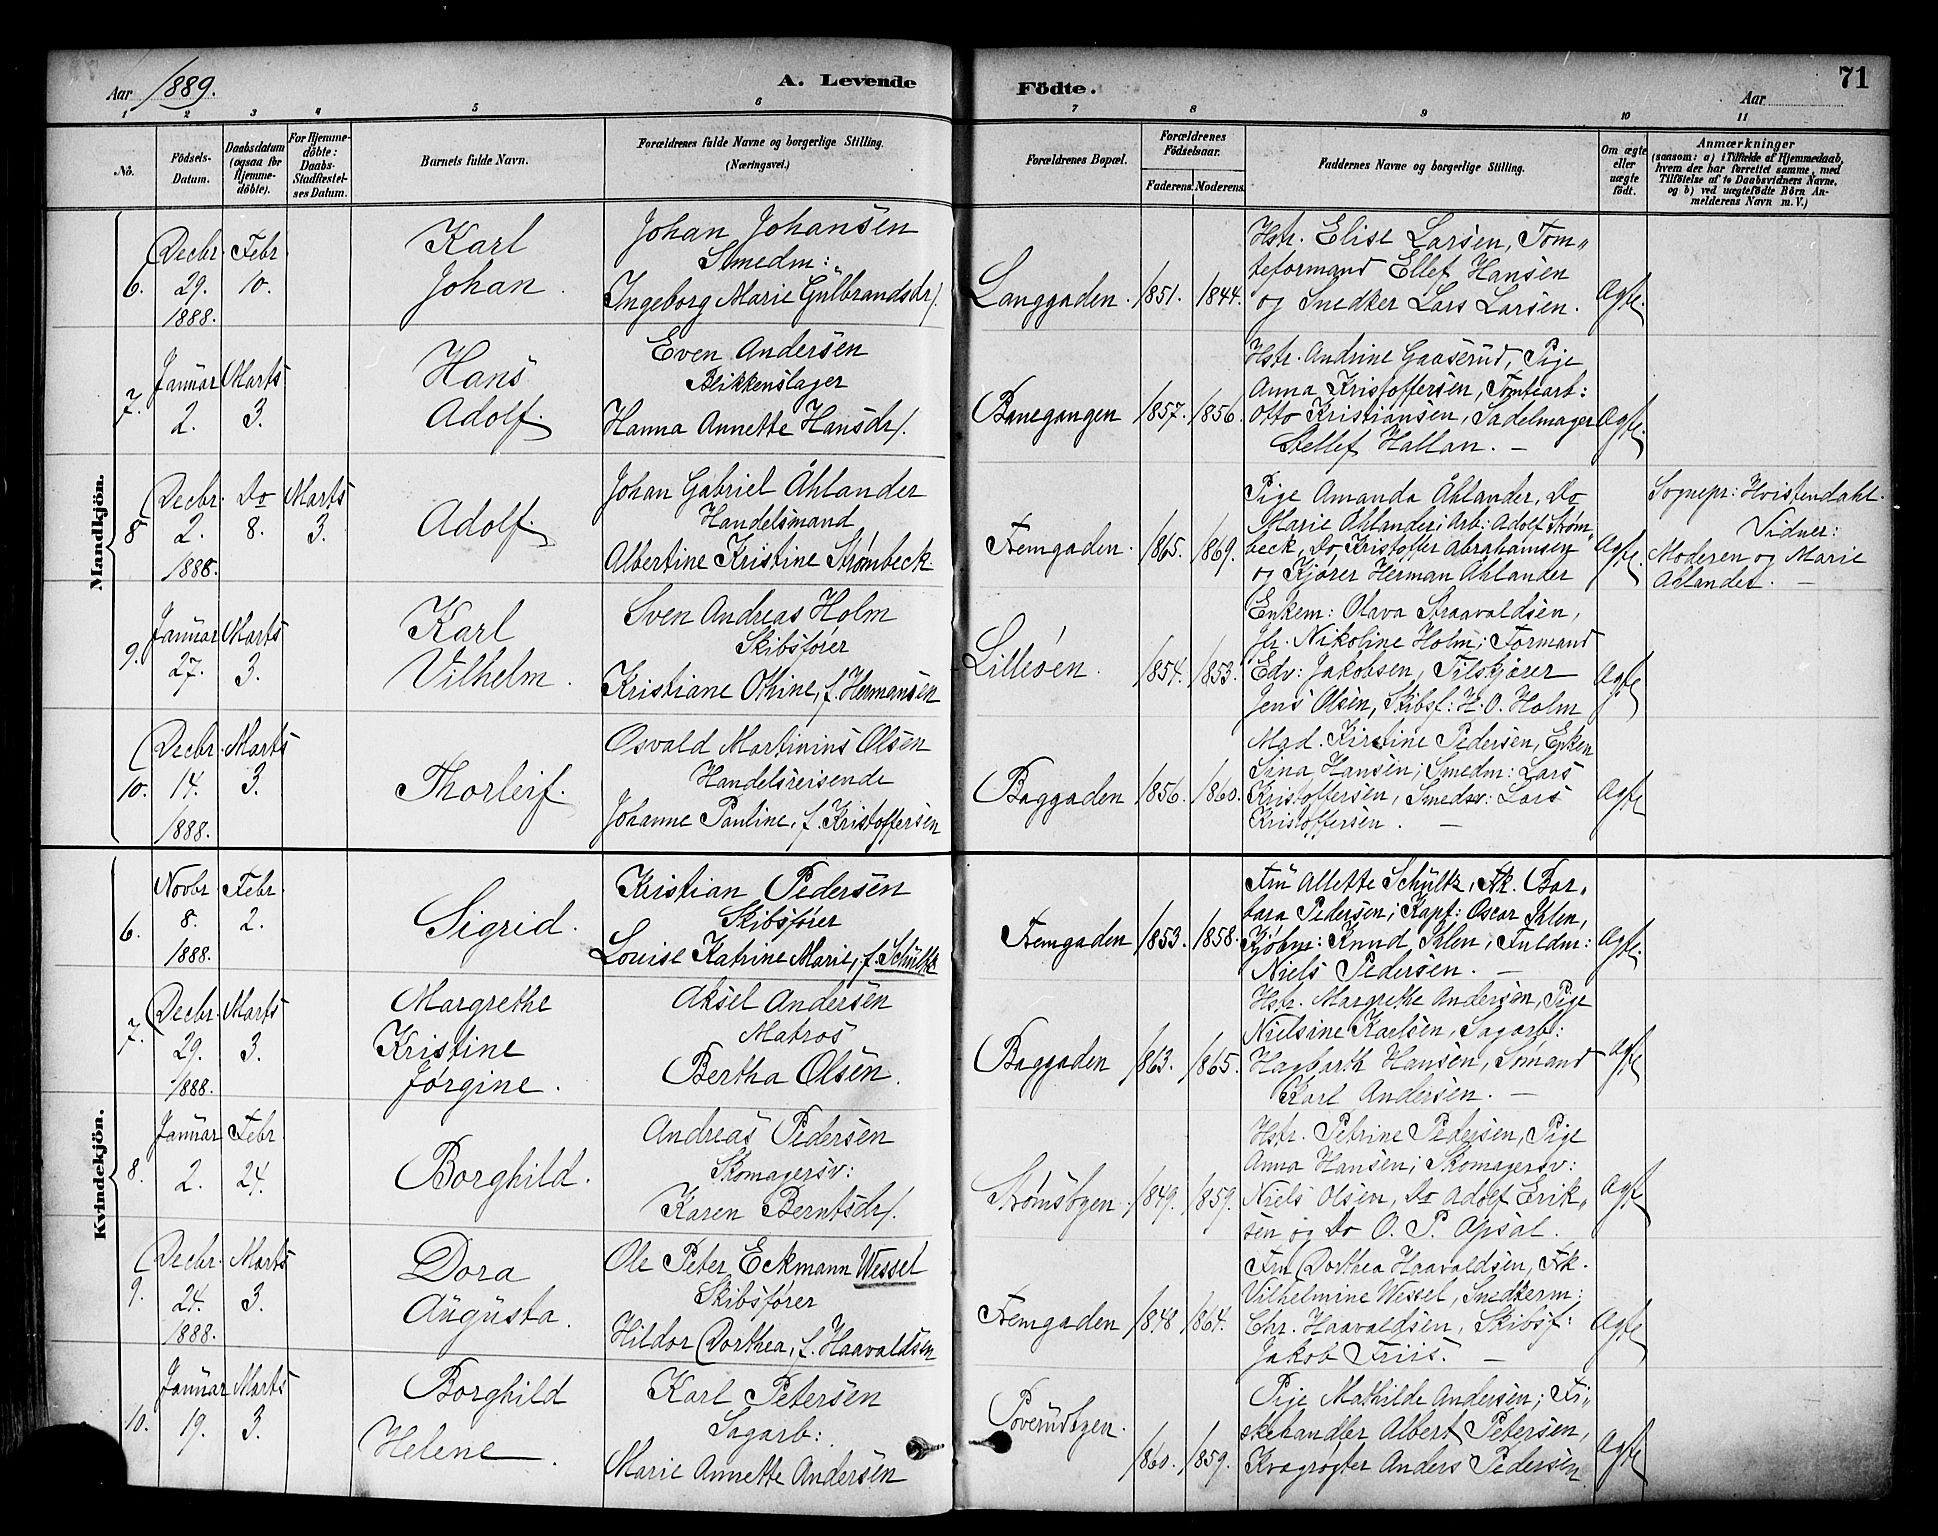 Aar 1889.
A. Levende
Födte.
Aar
71
1 2 3 4 5 6 7 8 9 10 11
Nö.
Födsels-Datum.
Daabsdatum (ogsaa for Hjemme-döbte).
For Hjemme-döbte: Daabs-Stadfæstelses Datum.
Barnets fulde Navn.
Forældrenes fulde Navne og borgerlige Stilling. (Næringsvei.)
Forældrenes Bopæl.
Forældrenes Födselsaar.
Faderens. Moderens.
Faddernes Navne og borgerlige Stilling.
Om ægte eller uægte födt.
Anmærkninger
(saasom: a) i Tilfælde af Hjemmedaab, hvem der har forrettet samme, med Tilföielse af to Daabsvidners Navne, og b) ved uægtefödte Börn Anmelderens Navn m. V.)
Mandkjön.
6. Decbr. 29. 1888. Febr. 10.
Karl
Johan.
Johan Johansen
Smedm:
Ingeborg Marie Gulbrandsdr.
Langgaden. 1851. 1844.
Hstr. Elise Larsen, Tom-
teformand Ellef Hansen
og Snedker Lars Larsen.
Ægte.
7. Januar 2. Marts 3.
Hans
Adolf.
Even Andersen
Blikkenslager
Hanna Annette Hansdr.
Banegangen 1857. 1856.
Hstr. Andrine Gaaserud, Pige
Anna Kristoffersen, Tomtearb:
Otto Kristiansen, Sadelmager
Stellef Hallan. —
Ægte.
8 Decbr. 2. 1888. Do 8. Marts 3.
Adolf.
Johan Gabriel Åhlander
Handelsmand
Albertine Kristine Strømbeck.
Fremgaden. 1865. 1869.
Pige Amanda Åhlander, Do
Marie Åhlander; Arb: Adolf Strøm-
beck, Do Kristoffer Abrahamsen
og Kjører Herman Åhlander
Ægte.
Sognepr: Hvistendahl.
Vidner:
Moderen og Marie
Åhlander. —
9. Januar 27. Marts 3.
Karl
Vilhelm.
Sven Andreas Holm
Skibsfører
Kristiane Othine, f. Hermansen
Lilleøen. 1854. 1853.
Enkem: Olava Straavaldsen,
Jfr. Nikoline Holm; Formand
Edv: Jakobsen, Tilskjører
Jens Olsen, Skibsf: H. O. Holm
Ægte
10. Decbr. 14. 1888. Marts 3.
Thorleif.
Osvald Martinius Olsen
Handelsreisende
Johanne Pauline, f. Kristoffersen
Baggaden 1856. 1860.
Mad. Kirstine Pedersen, Enken
Sina Hansen; Smedm: Lars
Kristoffersen, Smedsv: Lars
Kristoffersen. —
Ægte
Kvindekjön.
6. Novbr. 8. 1888. Febr. 2.
Sigrid.
Kristian Pedersen
Skibsfører
Louise Katrine Marie, f. Schultz
Fremgaden 1853. 1858.
Fru Allette Schultz, Frk. Bar-
bara Pedersen; Kapt: Oscar Ihlen,
Kjøbm: Knud Ihlen, Fuldm:
Niels Pedersen. —
Ægte.
7. Decbr. 29. 1888. Marts 3.
Margrethe
Kristine
Jørgine.
Aksel Andersen
Matros
Bertha Olsen.
Baggaden 1863. 1865.
Hstr. Margrethe Andersen, Pige
Nielsine Karlsen, Sagarb:
Hagbarth Hansen, Sømand
Karl Andersen. —
Ægte
8. Januar 2. Febr. 24.
Borghild.
Andreas Pedersen
Skomagersv:
Karen Berntsdr.
Strømsbygen. 1849. 1859.
Hstr. Petrine Pedersen, Pige
Anna Hansen; Skomagersv:
Niels Olsen, Do Adolf Erik-
sen og Do O. P. Opsal.
Ægte
9. Decbr. 24. 1888. Marts 3.
Dora
Augusta.
Ole Peter Eckmann Wessel
Skibsfører
Hildor Dorthea, f. Haavaldsen
Fremgaden 1848 1864.
Fru Dorthea Haavaldsen, Frk.
Vilhelmine Wessel, Snedkerm:
Chr. Haavaldsen, Skibsf:
Jakob Friis. —
Ægte
10. Januar 19. Marts 3.
Borghild
Helene.
Karl Petersen
Sagarb:
Marie Annette Andersen
Poverudbygen. 1860. 1859.
Pige Mathilde Andersen; Fi-
skehandler Albert Petersen,
Kvægrøgter Anders Pedersen
Ægte